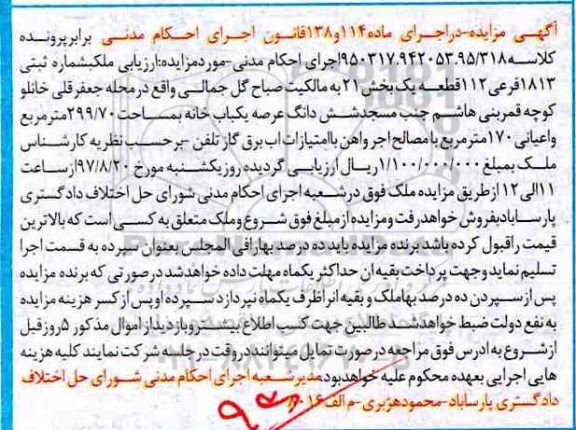 آگهی مزایده-در اجرای ماده ۱۱۴ و ۱۳۸ قانون اجرای احکام مدنی برابر پرونده
کلاسه ۹۵۰۳۱۷.۹۴۲۰۵۳.۹۵/۳۱۸ اجرای احکام مدنی-مورد مزایده: ارزیابی ملک بشماره ثبتی
۱۸۱۳ فرعی ۱۱۲ قطعه یک بخش ۲۱ به مالکیت صباح گل جمالی واقع در محله جعفر قلی خانلو
کوچه قمر بنی هاشم جنب مسجد شش دانگ عرصه یکباب خانه بمساحت ۲۹۹/۷۰ متر مربع
واعیانی ۱۷۰ متر مربع با مصالح اجر واهن با امتیازات اب برق گاز تلفن -بر حسب نظریه کارشناس
ملک بمبلغ ۱/۱۰۰/۰۰۰/۰۰۰ ریال ارزیابی گردیده روز یکشنبه مورخ ۹۷/۸/۲۰ از ساعت
۱۱ الی ۱۲ از طریق مزایده ملک فوق در شعبه اجرای احکام مدنی شورای حل اختلاف دادگستری
پارساباد بفروش خواهد رفت و مزایده از مبلغ فوق شروع و ملک متعلق به کسی است که بالاترین
قیمت را قبول کرده باشد برنده مزایده باید ده درصد بها را فی المجلس بعنوان سپرده به قسمت اجرا
تسلیم نماید وجهت پرداخت بقیه ان حداکثر یکماه مهلت داده خواهد شد در صورتی که برنده مزایده
پس از سپردن ده درصد بها ملک و بقیه انرا ظرف یکماه نپردازد سپرده او پس از کسر هزینه مزایده
به نفع دولت ضبط خواهد شد طالبین جهت کسب اطلاع بیشتر و بازدید از اموال مذکور ۵ روز قبل
از شروع به ادرس فوق مراجعه در صورت تمایل میتوانند در وقت در جلسه شرکت نمایند کلیه هزینه
هایی اجرایی بعهده محکوم علیه خواهد بود مدیر شعبه اجرای احکام مدنی شورای حل اختلاف
دادگستری پارساباد-محمود هژبری-م الف ۱۶